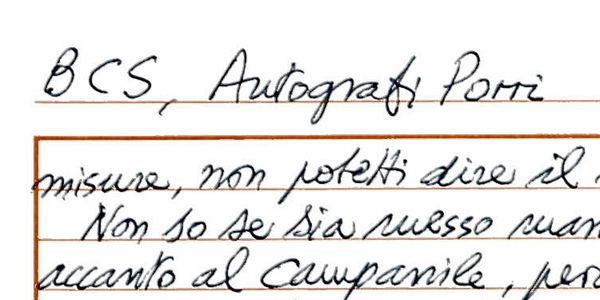 BCS, Autografi Porri
misure, non potetti dire il
Non so se sia messo man
accanto al Campanile, per